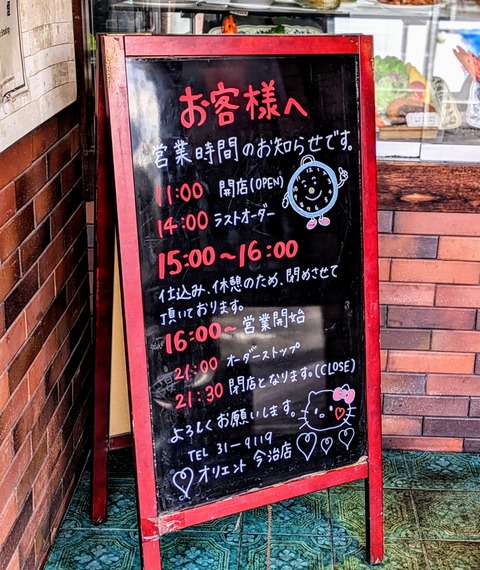 お客様へ
営業時間のお知らせです。
11:00 開店(OPEN)
14:00 ラストオーダー
15:00~16:00
仕込み、休憩のため、閉めさせて
頂いております。
16:00~ 営業開始
21:00 オーダーストップ
21:30 閉店となります。(CLOSE)
よろしくお願いします。
TEL 31-9119
オリエント 今治店